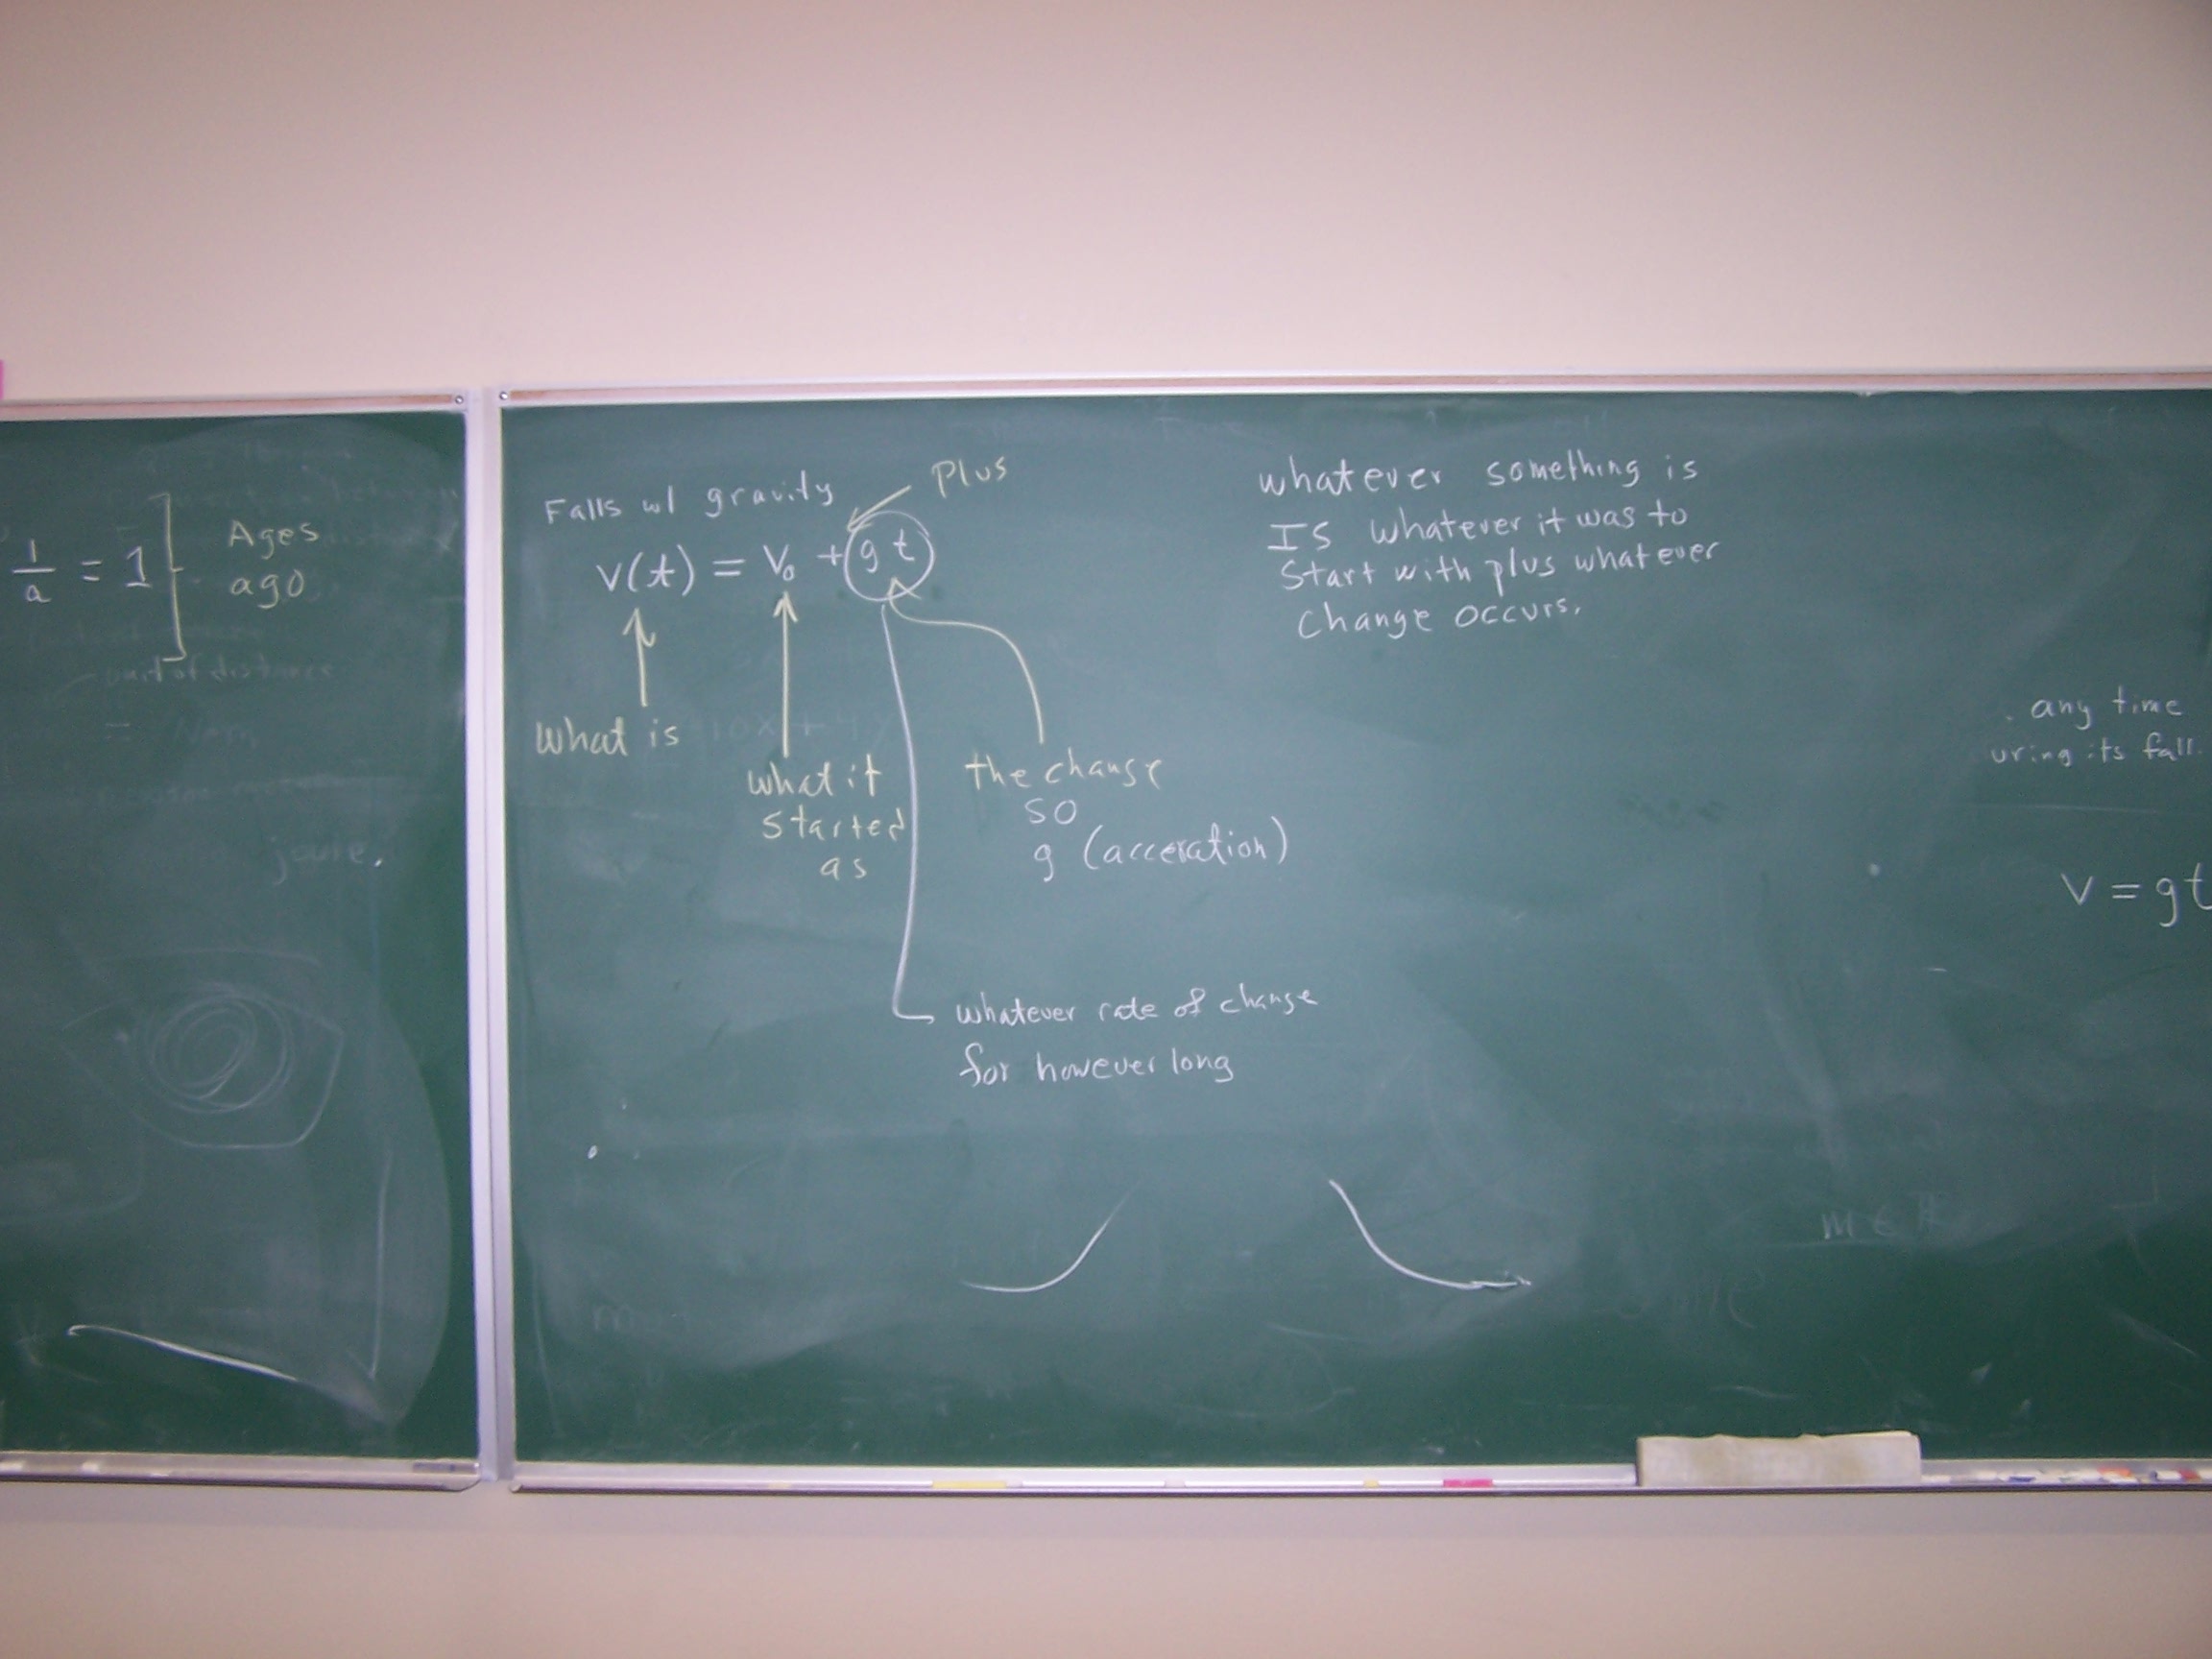 1/a = 1
Ages
ago
part of distance
joule.
Falls w/ gravity
Plus
v(t) = v₀ + g t
What is
what it
started
as
the change
so
g (acceration)
whatever rate of change
for however long
whatever something is
IS whatever it was to
Start with plus whatever
change occurs.
any time
uring its fall.
v = gt
m ∈